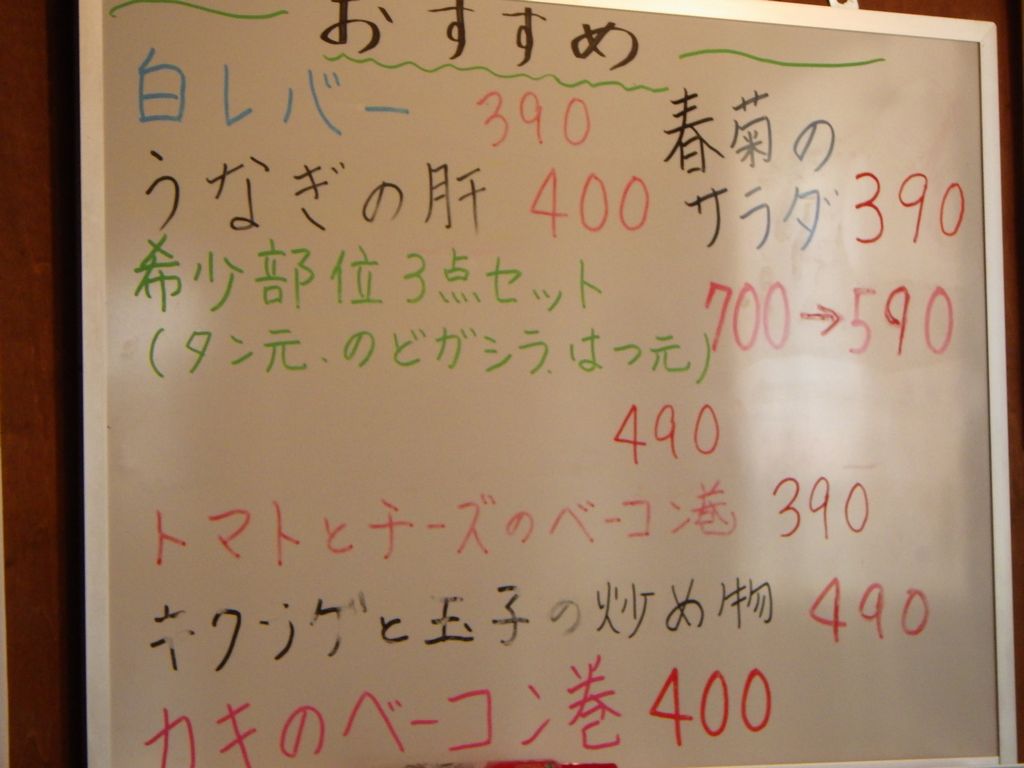 おすすめ
白レバー 390
うなぎの肝 400
春菊の
サラダ 390
希少部位3点セット
(タン元、のどガシラ、はつ元) 700→590
490
トマトとチーズのベーコン巻 390
キクラゲと玉子の炒め物 490
カキのベーコン巻 400